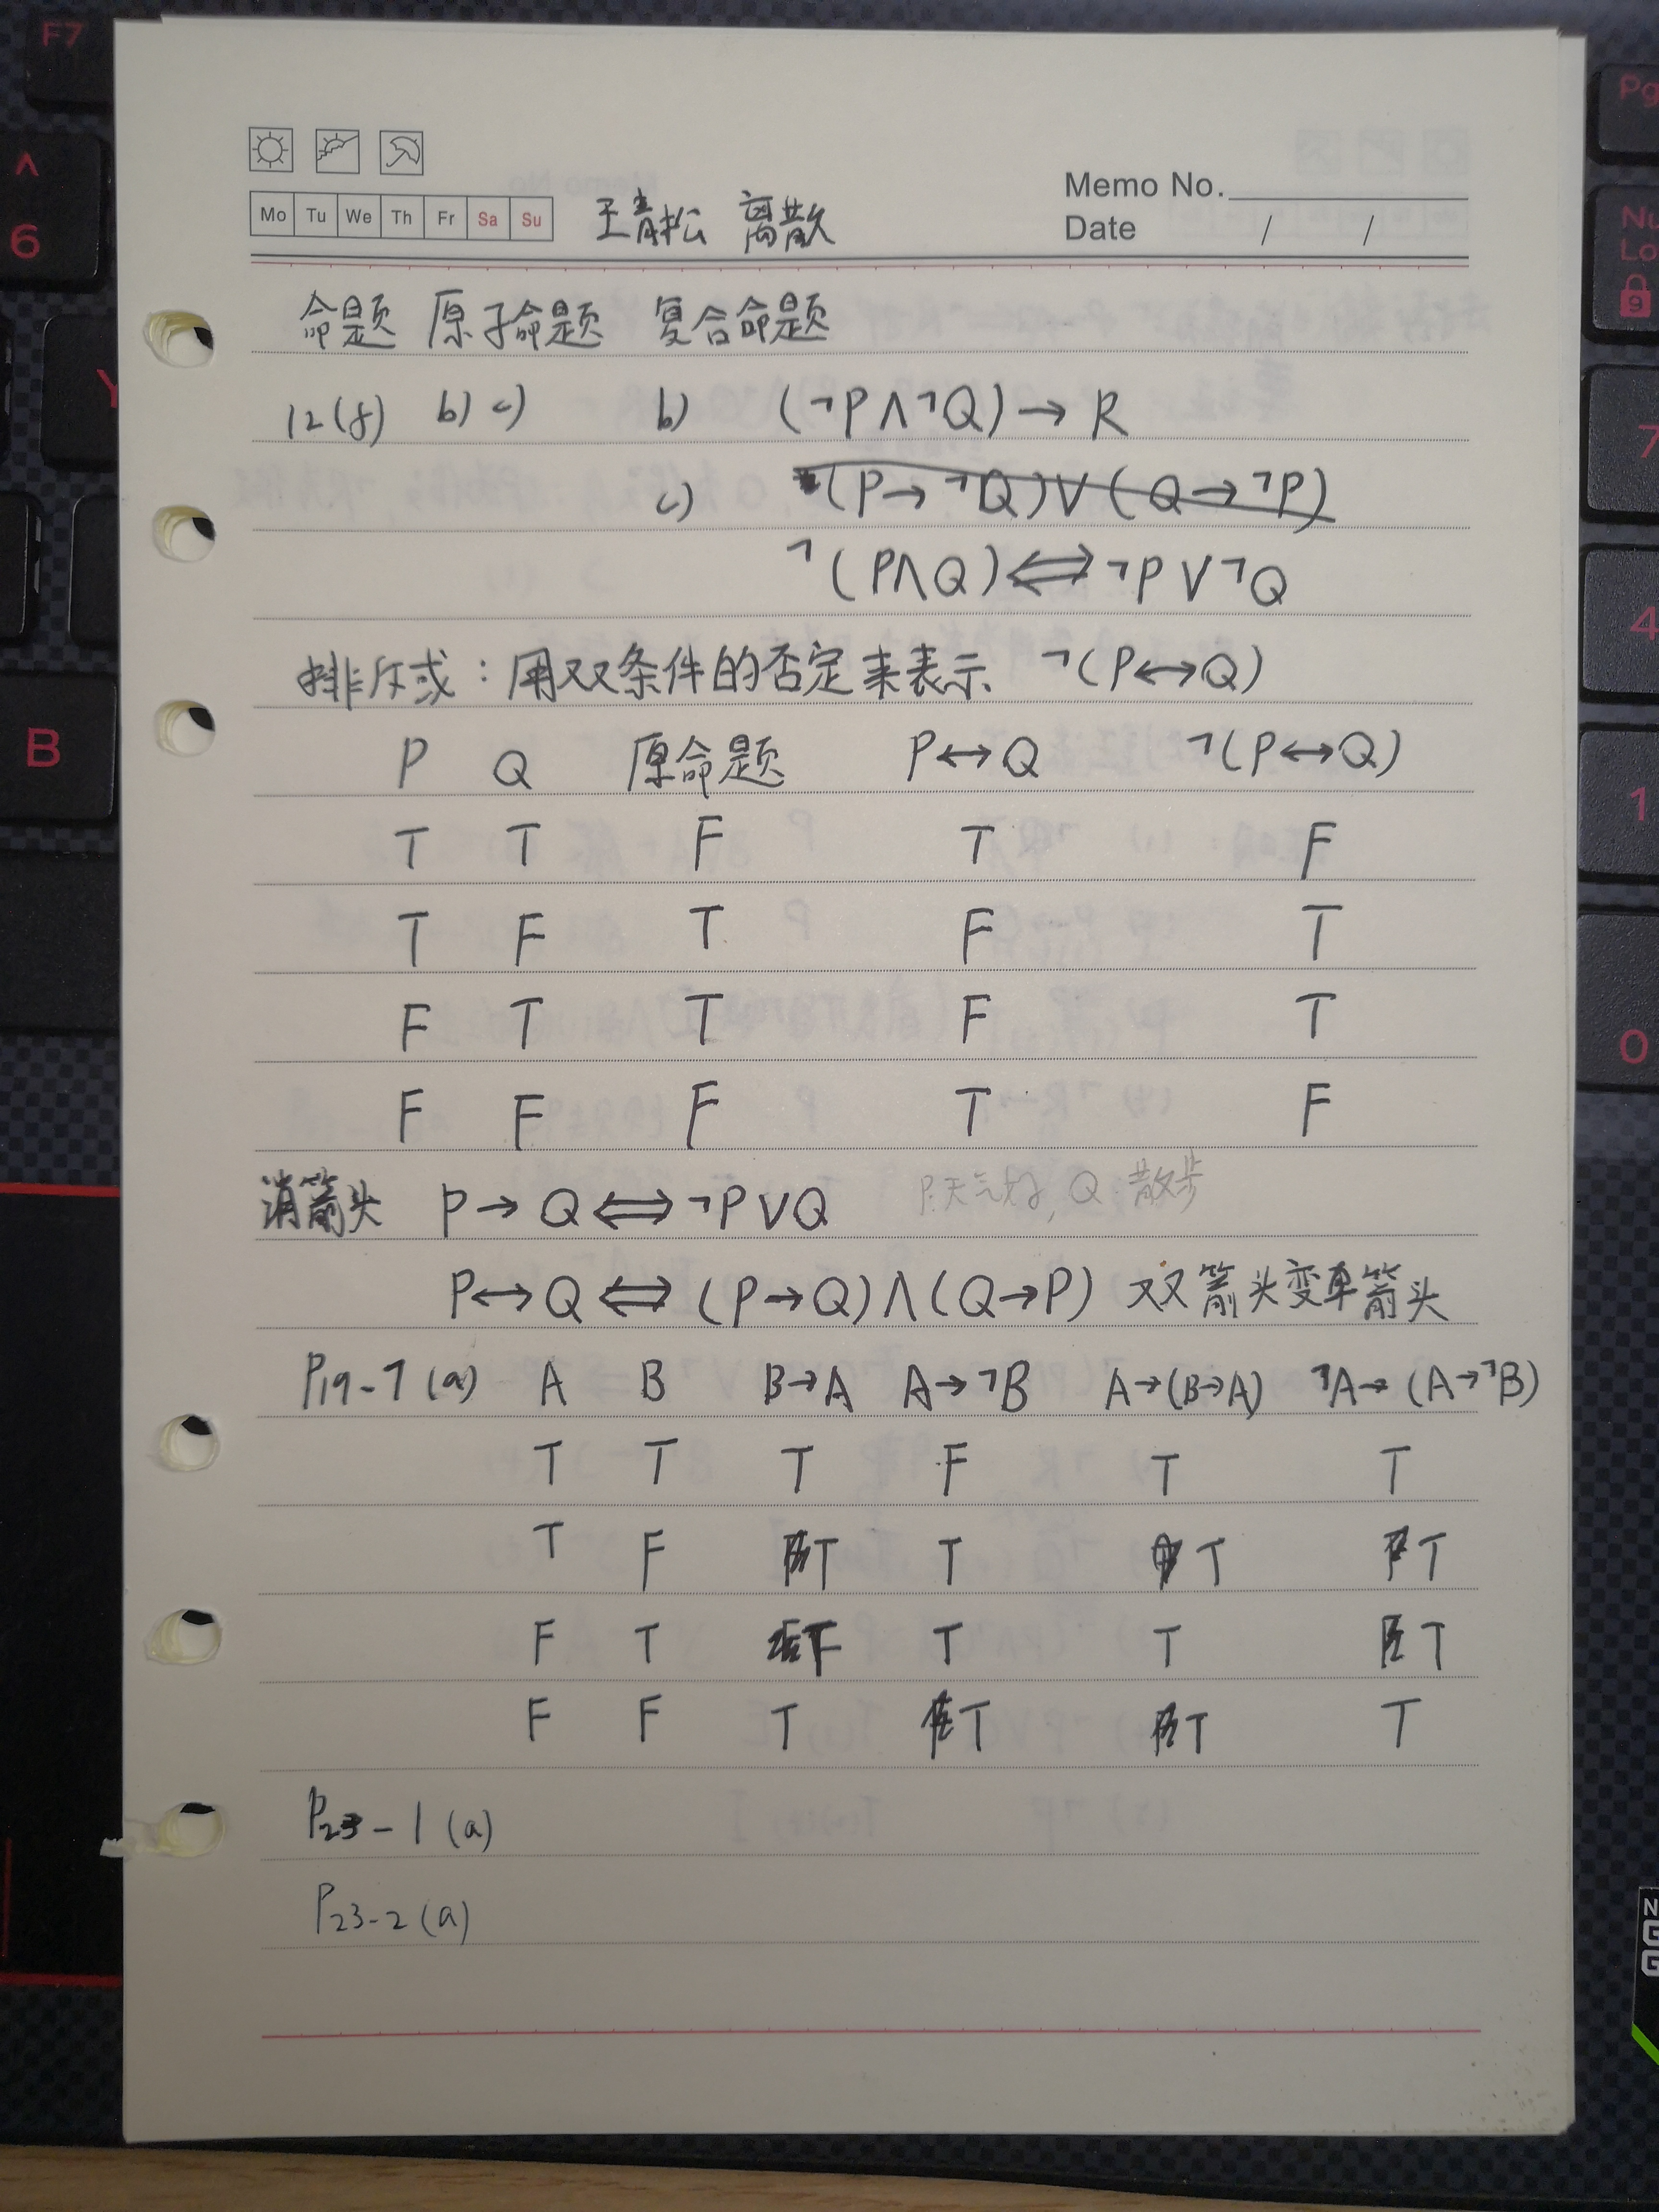 F7
Pg
^
6
Y
B
Nu
Lo
9
7
4
1
0
N
G
G
Memo No.
Mo Tu We Th Fr Sa Su 王青松 离散
Date / /
命题 原子命题 复合命题
12(8) b) c) b) (¬P∧¬Q)→R
c) (P→¬Q)∨(Q→¬P)
¬(P∧Q)⇔¬P∨¬Q
排斥或：用双条件的否定来表示 ¬(P↔Q)
P Q 原命题 P↔Q ¬(P↔Q)
T T F T F
T F T F T
F T T F T
F F F T F
消箭头 P→Q⇔¬P∨Q P:天气好, Q:散步
P↔Q⇔(P→Q)∧(Q→P) 双箭头变单箭头
P19-7(a) A B B→A A→¬B A→(B→A) ¬A→(A→¬B)
T T T F T T
T F T T T T
F T F T T T
F F T T T T
P23-1(a)
P23-2(a)